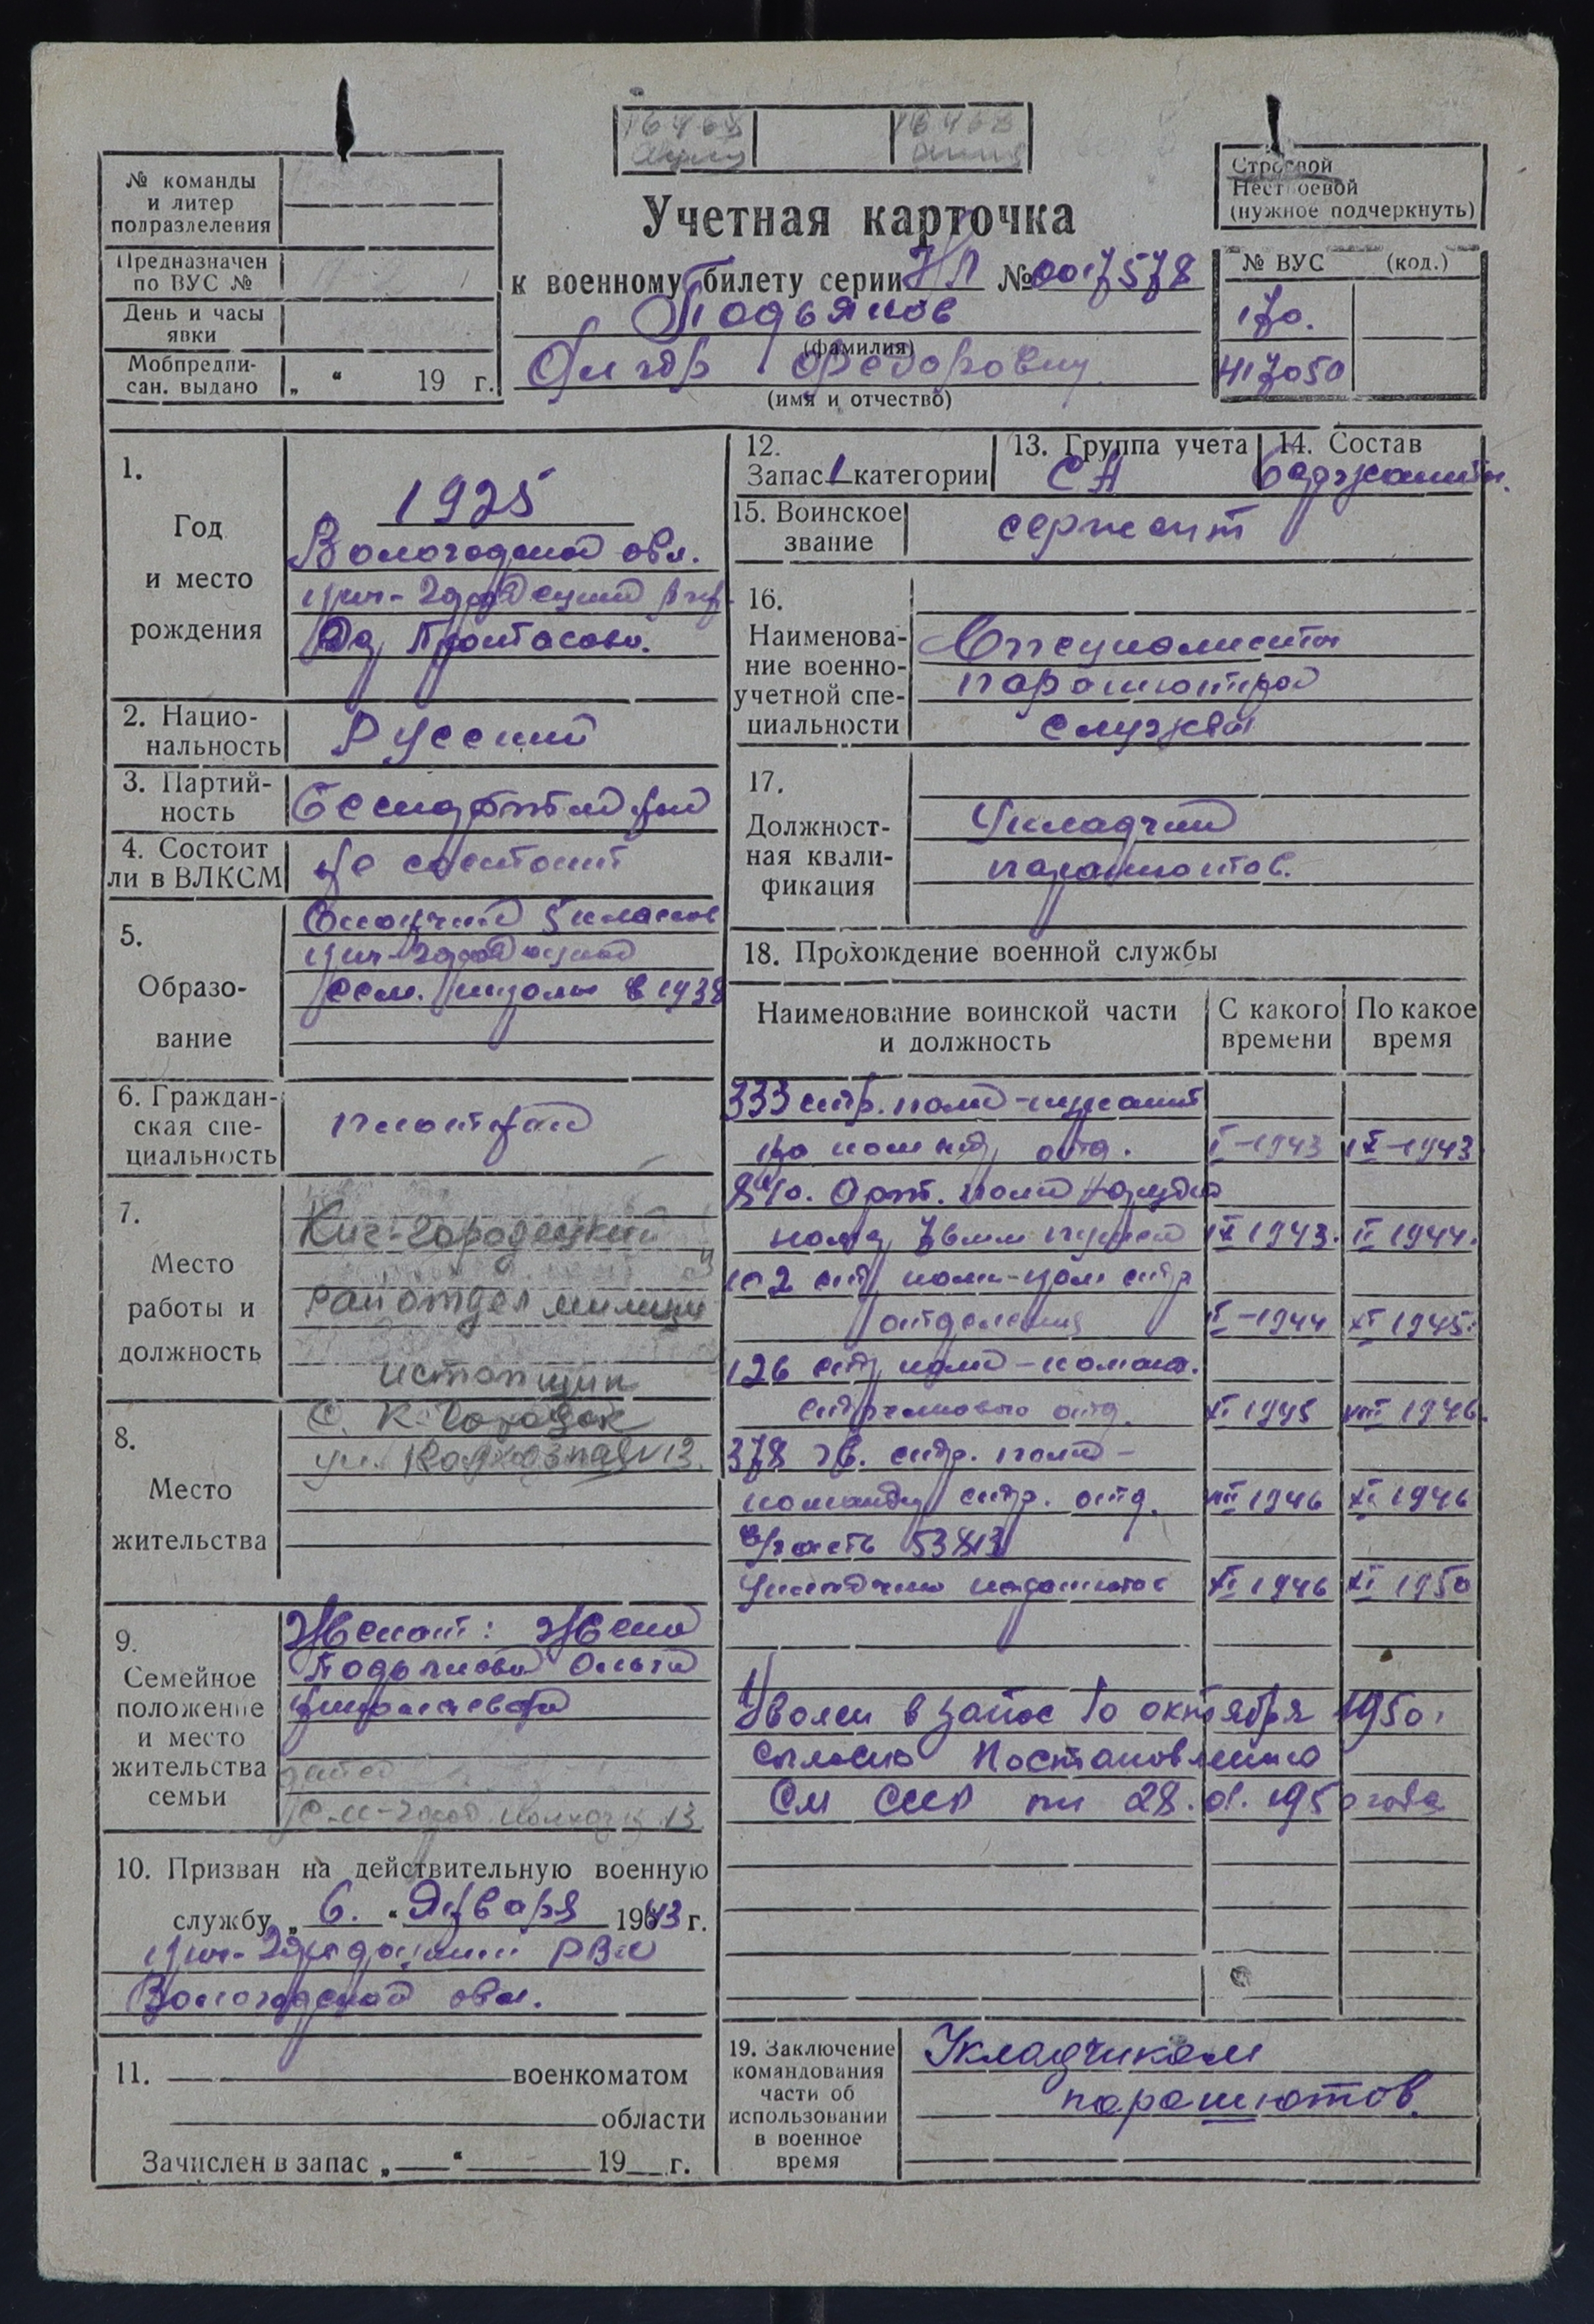 16468 16468
№ команды
и литер
подразделения
Предназначен
по ВУС №
День и часы
явки
Мобпредпи-
сан. выдано „ “ 19 г.
Учетная карточка
к военному билету серии НЛ № 0017578
Подьяков
(фамилия)
Федорович
(имя и отчество)
Строевой
Нестроевой
(нужное подчеркнуть)
№ ВУС (код.)
170.
417050
1.
Год
и место
рождения
1925
Вологодской обл.
Кич-Городецкий р-н
Дер Протасово.
2. Нацио-
нальность
Русский
3. Партий-
ность
Беспартийный
4. Состоит
ли в ВЛКСМ
Не состоит
5.
Образо-
вание
Окончил 5 классов
Кич-Городецкой
сем. школы в 1938
6. Граждан-
ская спе-
циальность
плотник
7.
Место
работы и
должность
Кич-Городецкий
райотдел милиции
истопник
8.
Место
жительства
с. К-Городок
ул. Колхозная 13.
9.
Семейное
положение
и место
жительства
семьи
Женат: Жена
Подьякова Ольга
13
10. Призван на действительную военную
службу „ 6. “ Января 1943 г.
Кич-Городецким РВК
Вологодской обл.
11. военкоматом
области
Зачислен в запас „ “ 19 г.
12.
Запас 1 категории
13. Группа учета
СА
14. Состав
Сержантск.
15. Воинское
звание
сержант
16.
Наименова-
ние военно-
учетной спе-
циальности
Специалисты
парашютной
службы
17.
Должност-
ная квали-
фикация
Укладчик
парашютов.
18. Прохождение военной службы
Наименование воинской части
и должность
С какого
времени
По какое
время
333 стр. полк - курсант
по команд. отд. I-1943 IX-1943
арт. полк
пушки IX 1943. II 1944.
102 стр полк-ком стр
отделения II-1944 XI 1945.
126 стр полк - команд.
стрелкового отд. XI 1945 VIII 1946.
378 гв. стр. полк -
командир стр. отд. VIII 1946 XI 1946
в/часть 53813
Укладчик парашютов XI 1946 XI 1950
Уволен в запас 10 октября 1950.
согласно Постановлению
СМ СССР от 28. 01. 1950 года
19. Заключение
командования
части об
использовании
в военное
время
Укладчиком
парашютов.